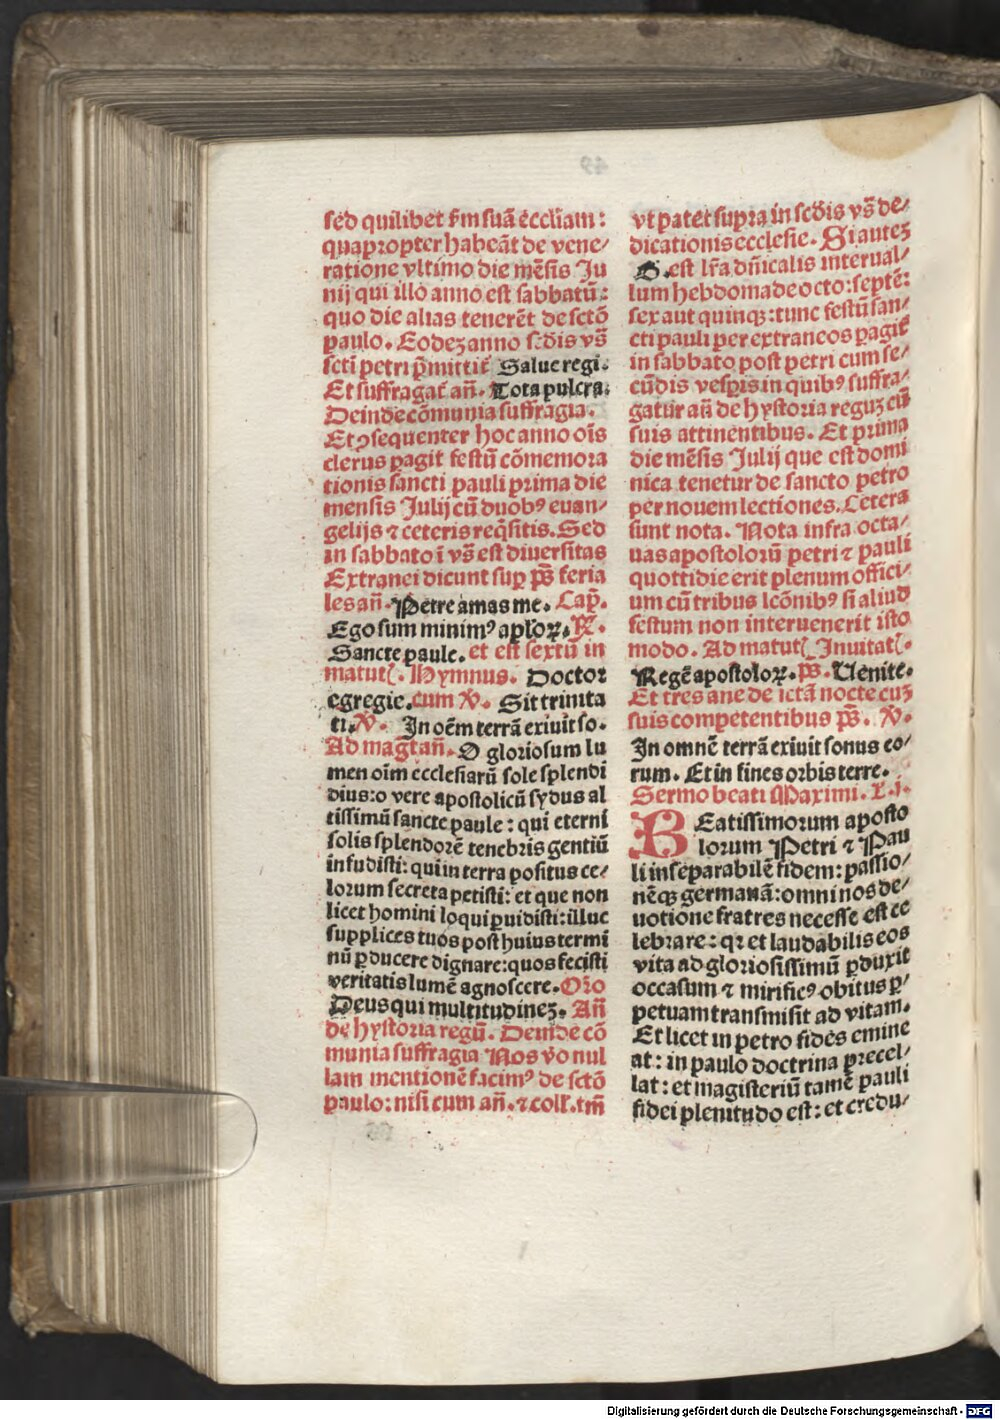 sed quilibet ẜm suā eccl̄iam:
quapropter habeāt de vene⸗
ratione vltimo die mēsis Ju
nij qui illo anno est sabbatū:
quo die alias tenerēt de sctō
paulo. Eodeꝫ anno scd̄is vs̄
scti petri p̄mittit᷑ Salue regi.
Et suffragat᷑ an̄. Tota pulcra.
Deinde cōmunia suffragia.
Et ꝯsequenter hoc anno oīs
clerus ꝑagit festū cōmemora
tionis sancti pauli prima die
mensis Julij cū duobꝰ euan⸗
gelijs ⁊ ceteris reqͥsitis. Sed
in sabbato ī vs̄ est diuersitas
Extranei dicunt suꝑ ps̄ feria
les an̄. Petre amas me. Cap̄.
Ego sum minimꝰ apl̄oꝝ. ℞.
Sancte paule. et est sextū in
matut᷑. Hymnus. Doctor
egregie. cum ℣. Sit trinita
ti. ℣. In oēm terrā exiuit so.
Ad mag̅t an̄. O gloriosum lu
men oīm ecclesiarū sole splendi
dius: o vere apostolicū sydus al
tissimū sancte paule: qui eterni
solis splendorē tenebris gentiū
infudisti: qui in terra positus ce⸗
lorum secreta petisti: et que non
licet homini loqui ꝑuidisti: illuc
supplices tuos post huius termi
nū ꝓducere dignare: quos fecisti
veritatis lumē agnoscere. Oro
Deus qui multitudineꝫ. An̄
de hystoria regū. Deinde cō
munia suffragia Nos v̄o nul
lam mentionē facimꝰ de sctō
paulo: nisi cum an̄. ⁊ coll̄. tm̄
vt patet supra in scd̄is vs̄ de⸗
dicationis ecclesie. Si auteꝫ
G. est lr̄a dn̄icalis interual⸗
lum hebdomade octo: septē:
sex aut quinqꝫ: tunc festū san⸗
cti pauli per extraneos ꝑagit᷑
in sabbato post petri cum se⸗
cūdis vesꝑis in quibꝰ suffra⸗
gatur an̄ de hystoria reguꝫ cū
suis attinentibus. Et prima
die mēsis Julij que est domi
nica tenetur de sancto petro
per nouem lectiones. Cetera
sunt nota. Nota infra octa⸗
uas apostolorū petri ⁊ pauli
quottidie erit plenum offici⸗
um cū tribus lcōnibꝰ si aliud
festum non interuenerit isto
modo. Ad matut᷑ Inuitat᷑.
Regē apostoloꝝ. ps̄. Uenite.
Et tres an̄e de ictā nocte cuꝫ
suis competentibus ps̄. ℣.
In omnē terrā exiuit sonus eo⸗
rum. Et in fines orbis terre.
Sermo beati Maximi. L. i.
BEatissimorum aposto
lorum Petri ⁊ Pau
li inseparabilē fidem: passio⸗
nēqꝫ germanā: omni nos de⸗
uotione fratres necesse est ce
lebrare: qꝛ et laudabilis eos
vita ad gloriosissimū ꝓduxit
occasum ⁊ mirificꝰ obitus ꝑ⸗
petuam transmisit ad vitam.
Et licet in petro fides emine
at: in paulo doctrina precel⸗
lat: et magisteriū tamē pauli
fidei plenitudo est: et credu⸗
Digitalisierung gefördert durch die Deutsche Forschungsgemeinschaft - DFG